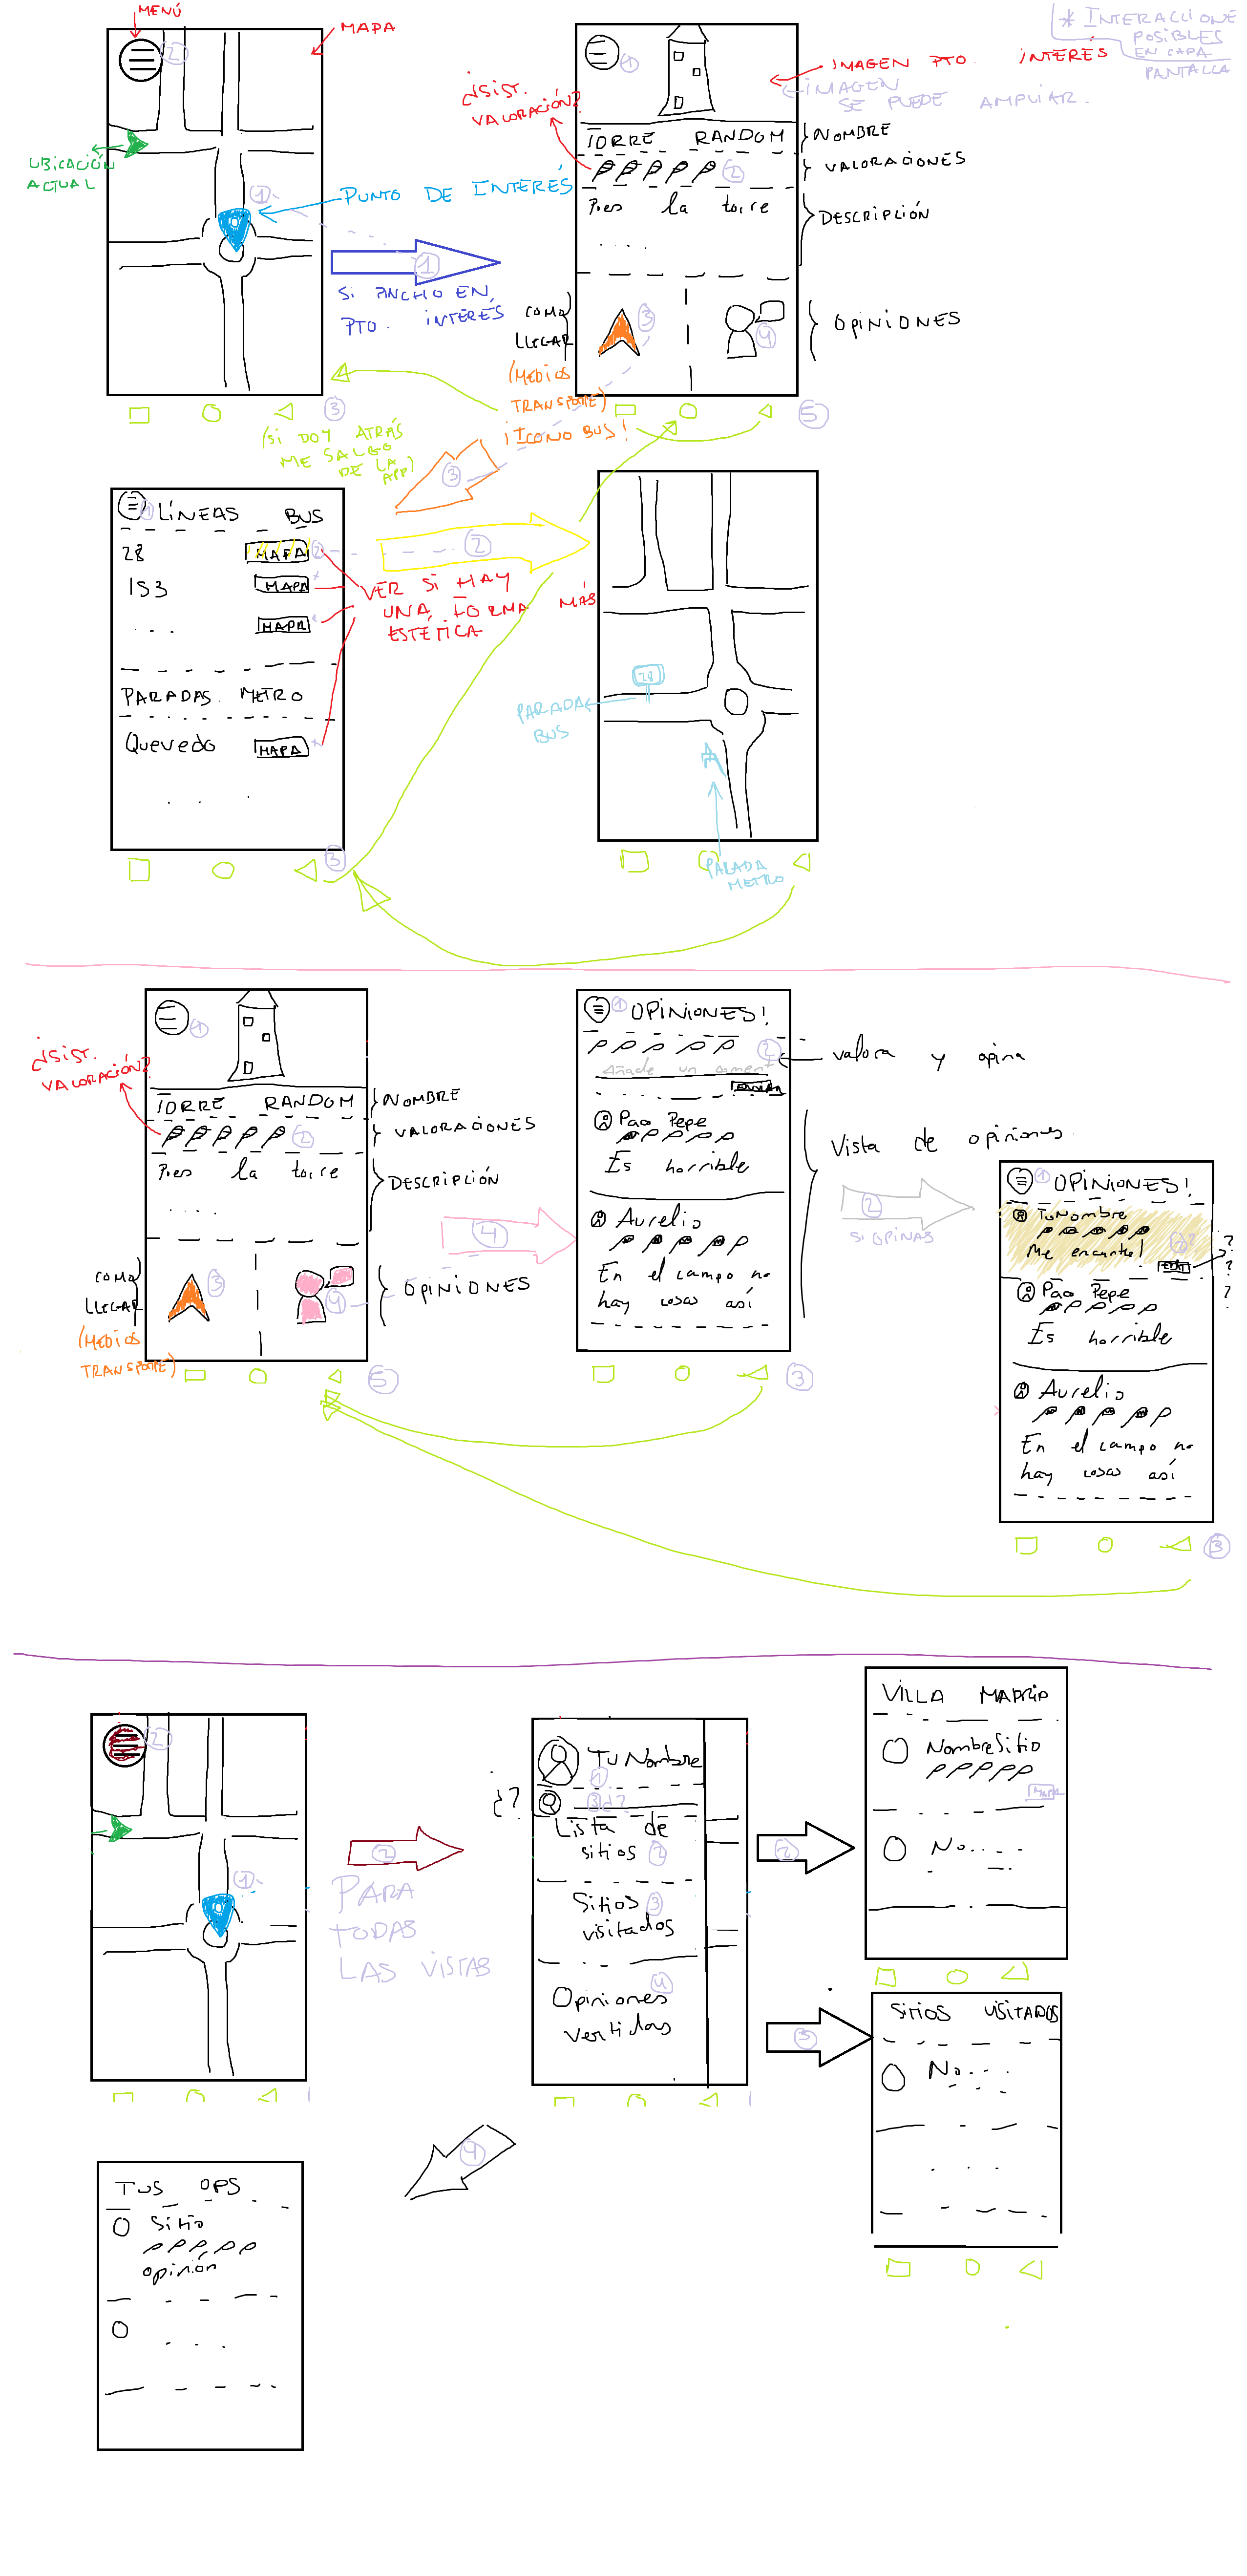 MENÚ
MAPA
2
UBICACIÓN
ACTUAL
1
PUNTO DE INTERÉS
1
SI PINCHO EN
PTO. INTERÉS
3
(SI DOY ATRÁS
ME SALGO
DE LA
APP)
* INTERACCIONE
POSIBLES
EN CADA
PANTALLA
1
IMAGEN PTO. INTERÉS
IMAGEN
SE PUEDE AMPLIAR.
¿SIST.
VALORACIÓN?
TORRE RANDOM
NOMBRE
2
VALORACIONES
Pues la torre
. . . .
DESCRIPCIÓN
COMO
LLEGAR
3
4
OPINIONES
(MEDIOS
TRANSPORTE)
¡ICONO BUS!
5
3
1
LÍNEAS BUS
28 MAPA 2
153 MAPA
. . . MAPA
PARADAS METRO
Quevedo MAPA
. . .
3
2
VER SI HAY
UNA FORMA MÁS
ESTÉTICA
28
PARADA
BUS
PARADA
METRO
¿SIST.
VALORACIÓN?
1
TORRE RANDOM
NOMBRE
2
VALORACIONES
Pues la torre
. . . .
DESCRIPCIÓN
COMO
LLEGAR
3
4
OPINIONES
(MEDIOS
TRANSPORTE)
5
4
1
OPINIONES!
2
Añade un coment
ENVIAR
valora y opina
Pao Pepe
Es horrible
Aurelio
En el campo no
hay cosas así
Vista de opiniones
3
2
SI OPINAS
1
OPINIONES!
TuNombre
Me encanta!
EDIT
?
?
?
?
Pao Pepe
Es horrible
Aurelio
En el campo no
hay cosas así
3
2
1
2
PARA
TODAS
LAS VISTAS
Tu Nombre
1
¿?
3¿?
Lista de
sitios 2
Sitios 3
visitados
4
Opiniones
vertidas
2
VILLA MADRID
NombreSitio
MAPA
No.....
3
SITIOS VISITADOS
No....
. . .
4
TUS OPS
Sitio
opinión
. . .